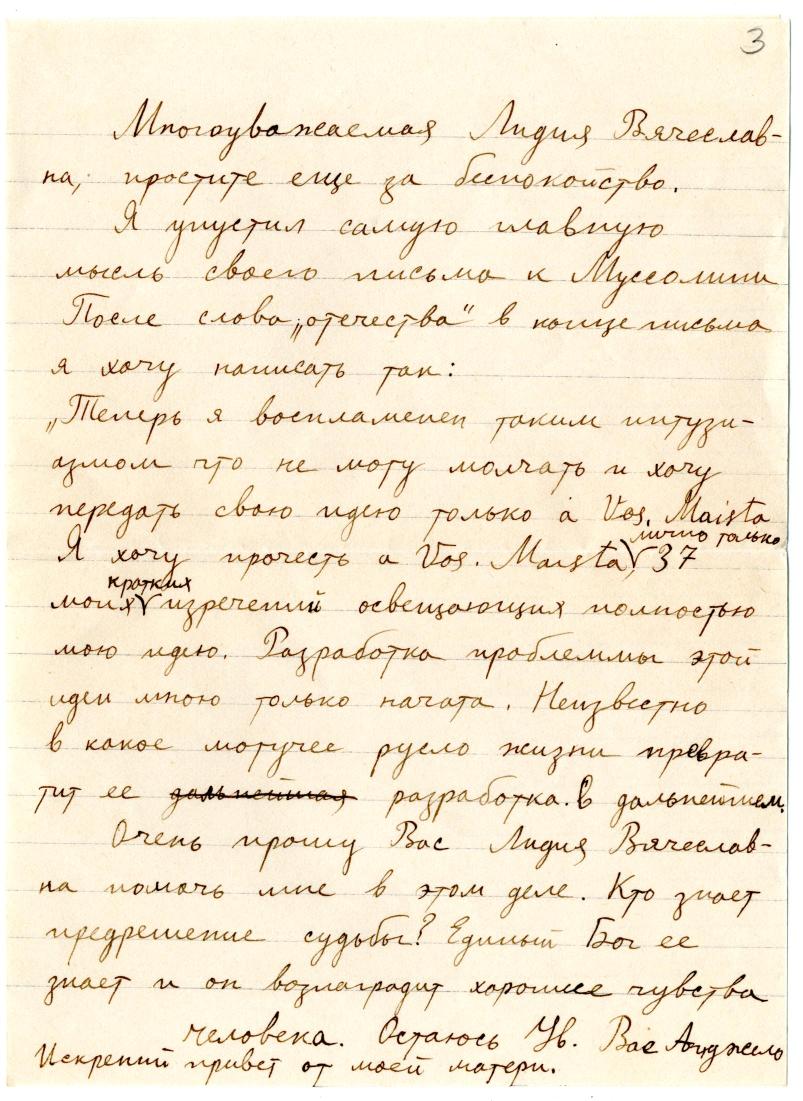 3
Многоуважаемая Лидия Вячеслав-
на, простите еще за беспокойство.
Я упустил самую главную
мысль своего письма к Муссолини
После слова „отечества" в конце письма
я хочу написать так:
„Теперь я воспламенен таким интузи-
азмом что не могу молчать и хочу
передать свою идею только а Vos. Maista
лично только
Я хочу прочесть а Vos. Maista, 37
кратких
моих изречений освещающих полностью
мою идею. Разработка проблеммы этой
идеи мною только начата. Неизвестно
в какое могучее русло жизни превра-
тит ее дальнейшая разработка. В дальнейшем.
Очень прошу Вас Лидия Вячеслав-
на помочь мне в этом деле. Кто знает
предрешение судьбы? Единый Бог ее
знает и он возлаградит хорошие чувства
человека. Остаюсь Ув. Вас Анджело
Искрений привет от моей матери.